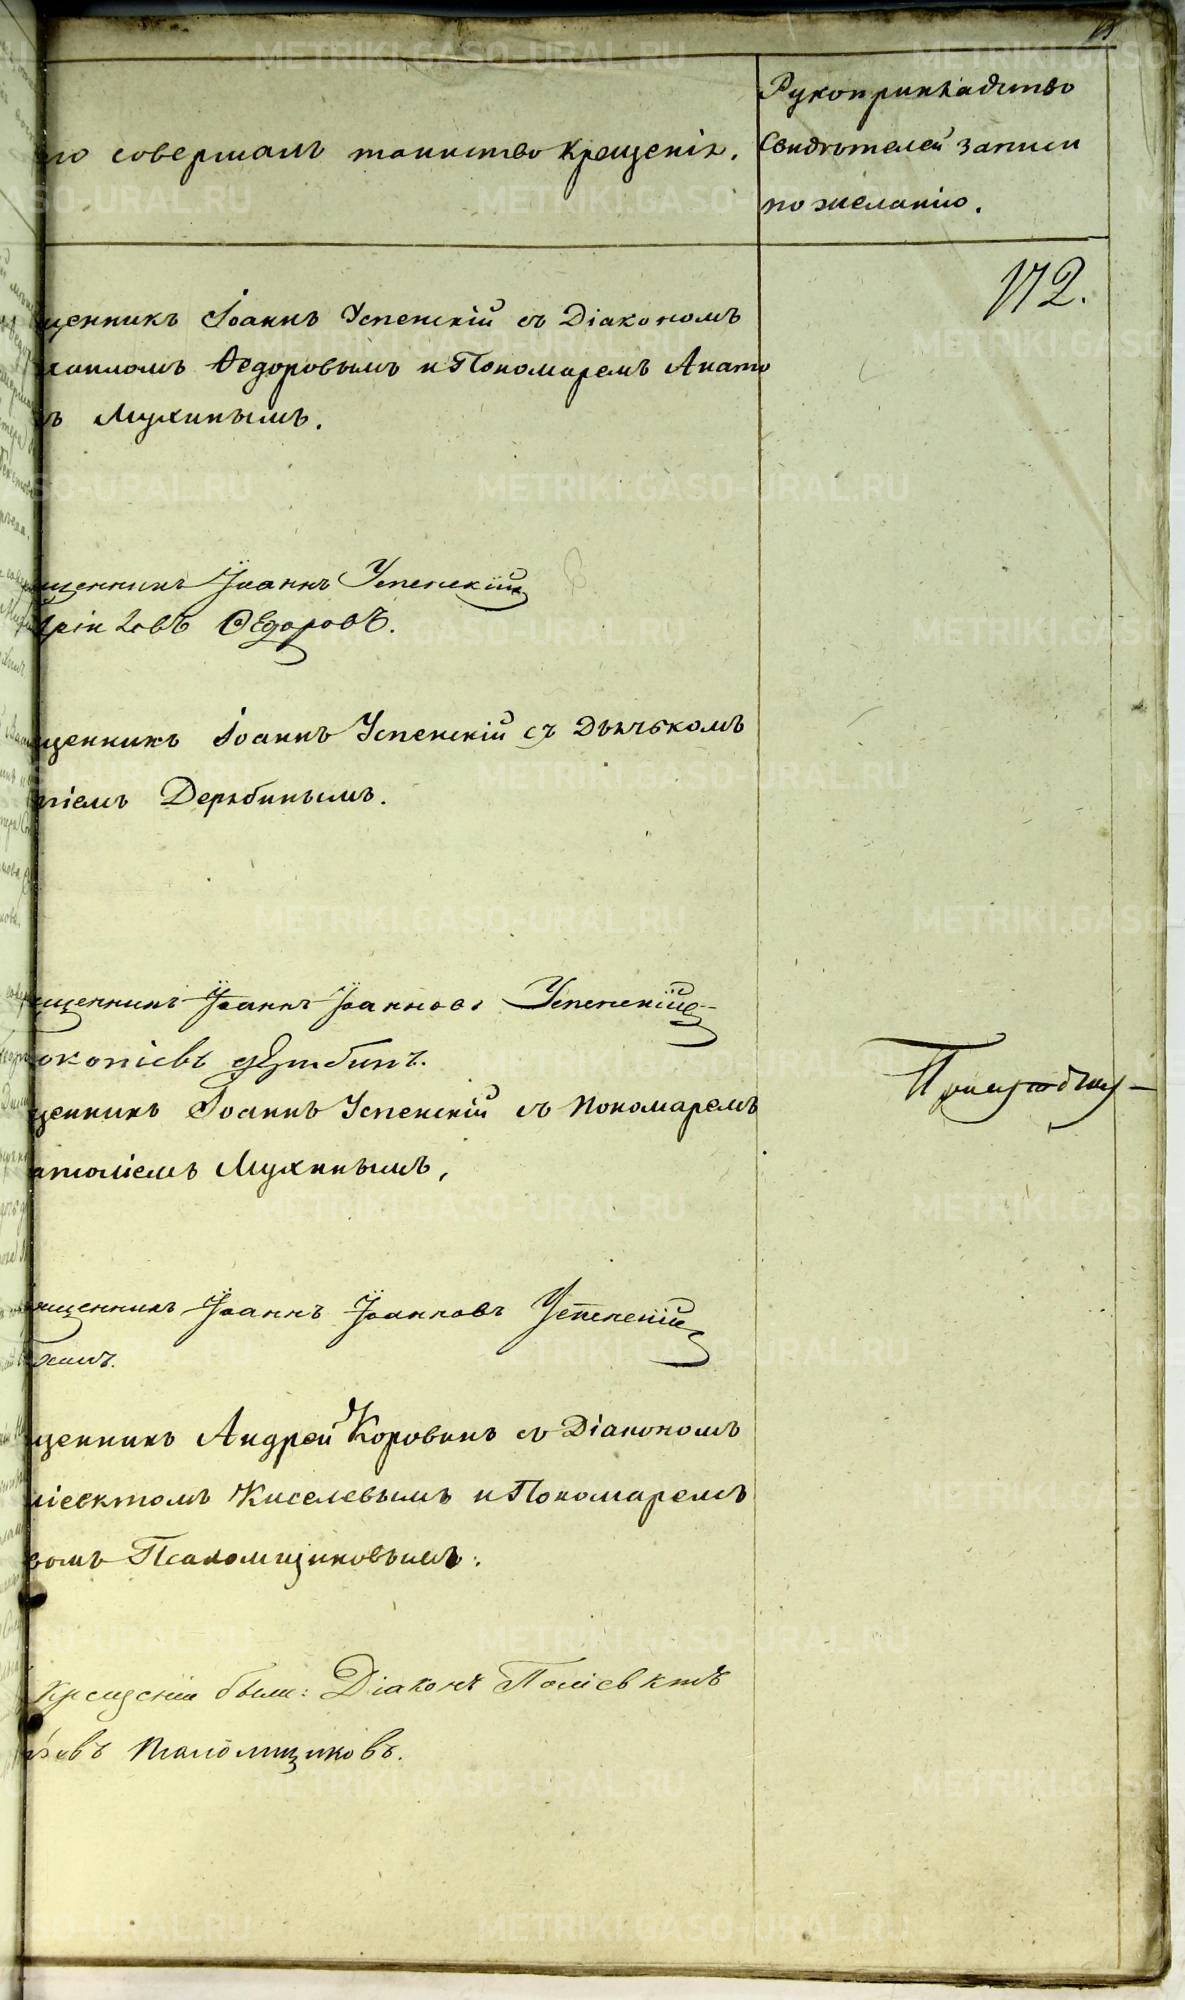 то совершалъ таинство крещенія.
Рукоприкладство
Свидѣтелей записи
по желанію.
172.
щенникъ Іоаннъ Успенскій съ Діакономъ
хаиломъ Ѳедоровымъ и Пономаремъ Анато
ъ Мухинымъ.
щенникъ Іоаннъ Успенскій
Ѳедоровъ.
щенникъ Іоаннъ Успенскій съ Дьячькомъ
піемъ Дерябинымъ.
щенникъ Іоаннъ Іоанновъ Успенскій
окопіевъ
щенникъ Іоаннъ Успенскій съ Пономаремъ
атоліемъ Мухинымъ,
щенникъ Іоаннъ Іоанновъ Успенскій
щенникъ Андрей Коровинъ съ Діакономъ
ліевктомъ Киселевымъ и Пономаремъ
вомъ Псаломщиковымъ.
крещеніи были: Діаконъ Поліевктъ
евъ Псаломщиковъ.
METRIKI.GASO-URAL.RU